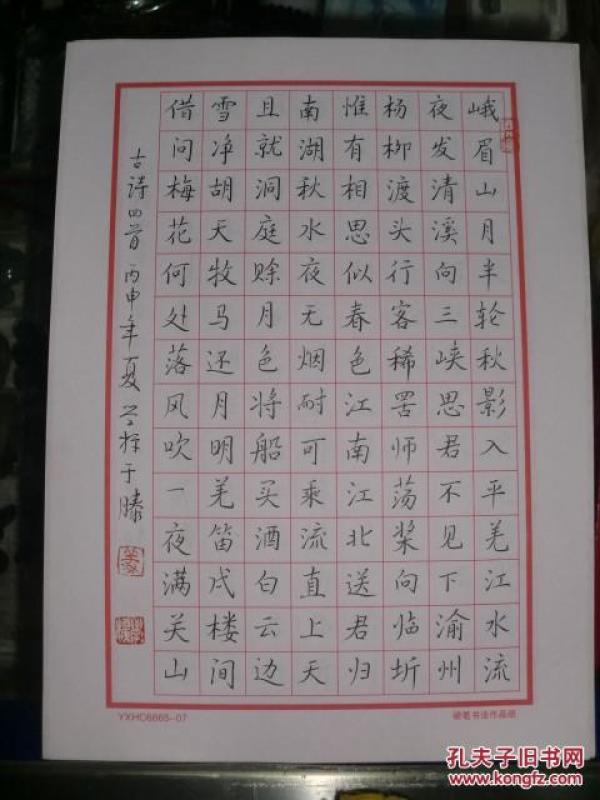 峨眉山月半轮秋影入平羌江水流
夜发清溪向三峡思君不见下渝州
杨柳渡头行客稀罟师荡桨向临圻
惟有相思似春色江南江北送君归
南湖秋水夜无烟耐可乘流直上天
且就洞庭赊月色将船买酒白云边
雪净胡天牧马还月明羌笛戍楼间
借问梅花何处落风吹一夜满关山
古诗四首丙申年夏
于滕
YXHC6665-07
硬笔书法作品纸
孔夫子旧书网
www.kongfz.com